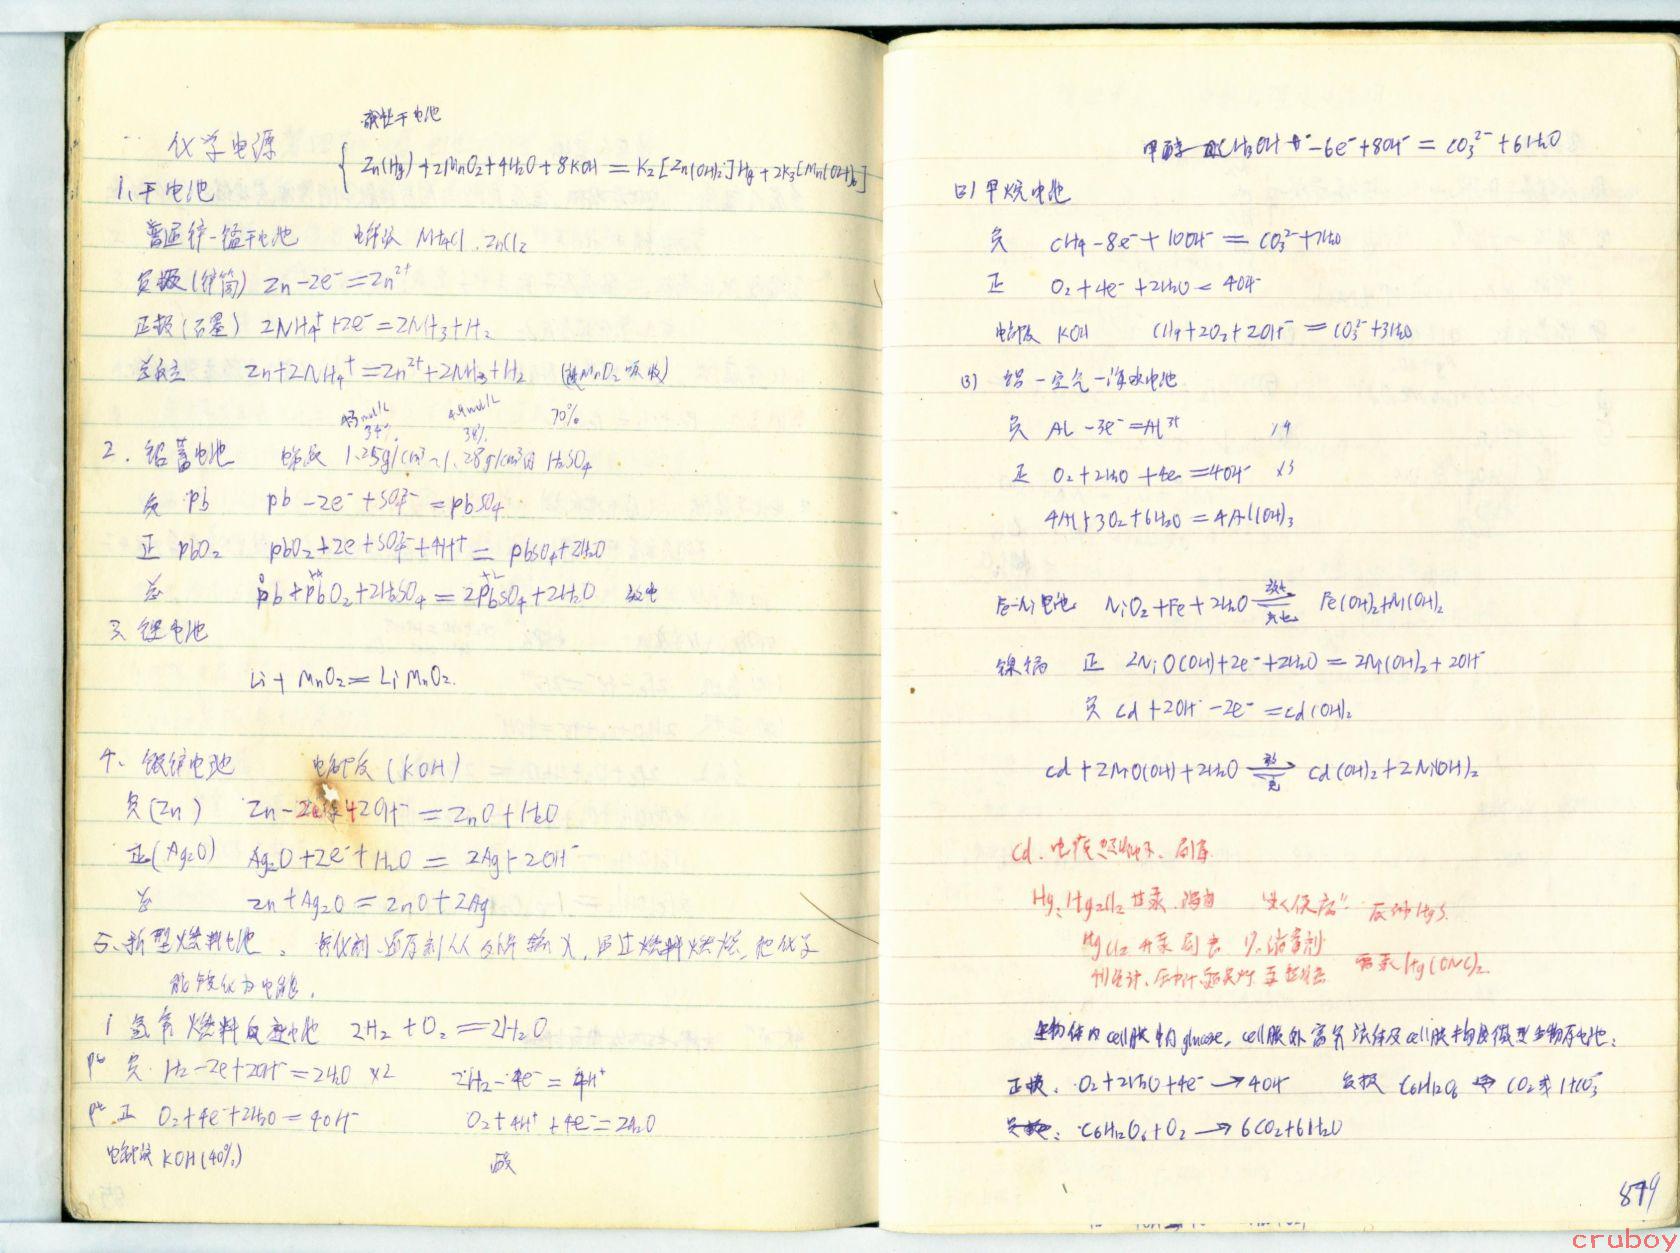 碱性干电池
化学电源
Zn(Hg)+2MnO₂+4H₂O+8KOH=K₂[Zn(OH)₂]Hg+2K₃[Mn(OH)₆]
1、干电池
普通锌-锰干电池 电解液 NH₄Cl、ZnCl₂
负极(锌筒) Zn-2e⁻=Zn²⁺
正极(石墨) 2NH₄⁺+2e⁻=2NH₃+H₂
总反应 Zn+2NH₄⁺=Zn²⁺+2NH₃+H₂ (被MnO₂吸收)
mol/L 4.9mol/L 70%
34% 38%
2. 铅蓄电池 电解液 1.25g/cm³~1.28g/cm³的H₂SO₄
负 Pb Pb-2e⁻+SO₄²⁻=PbSO₄
正 PbO₂ PbO₂+2e+SO₄²⁻+4H⁺=PbSO₄+2H₂O
0 +4 +2
总 Pb+PbO₂+2H₂SO₄=2PbSO₄+2H₂O 放电
3. 锂电池
Li+MnO₂=LiMnO₂.
4、银锌电池 电解液(KOH)
负(Zn) Zn-2e⁻+2OH⁻=ZnO+H₂O
正(Ag₂O) Ag₂O+2e⁻+H₂O=2Ag+2OH⁻
总 Zn+Ag₂O=ZnO+2Ag
5、新型燃料电池。氧化剂、还原剂从外部输入,通过燃料燃烧,把化学
能转化为电能.
1 氢氧燃料电池 2H₂+O₂=2H₂O
负. H₂-2e+2OH⁻=2H₂O ×2 2H₂-4e⁻=4H⁺
正 O₂+4e⁻+2H₂O=4OH⁻ O₂+4H⁺+4e⁻=2H₂O
电解液 KOH(40%) 酸
甲醇 CH₃OH -6e⁻+8OH⁻=CO₃²⁻+6H₂O
(2) 甲烷电池
负 CH₄-8e⁻+10OH⁻=CO₃²⁻+7H₂O
正 O₂+4e⁻+2H₂O=4OH⁻
电解液 KOH CH₄+2O₂+2OH⁻=CO₃²⁻+3H₂O
(3) 铝-空气-海水电池
负 Al-3e⁻=Al³⁺ ×4
正 O₂+2H₂O+4e=4OH⁻ ×3
4Al+3O₂+6H₂O=4Al(OH)₃
Fe-Ni电池 NiO₂+Fe+2H₂O ⇌ 放电 充电 Fe(OH)₂+Ni(OH)₂
镍镉 正 2NiO(OH)+2e⁻+2H₂O=2Ni(OH)₂+2OH⁻
负 Cd+2OH⁻-2e⁻=Cd(OH)₂
Cd+2NiO(OH)+2H₂O ⇌ 放 充 Cd(OH)₂+2Ni(OH)₂
Cd、
Hg: Hg₂Cl₂ 甘汞 "水俣病" 辰砂HgS.
HgCl₂ 升汞 剧毒 消毒剂
雷汞Hg(ONC)₂.
生物体内cell膜内glucose, cell膜外富氧液体及cell膜构成微型生物原电池:
正极: O₂+2H₂O+4e⁻→4OH⁻ 负极 C₆H₁₂O₆→CO₂或HCO₃⁻
C₆H₁₂O₆+O₂→6CO₂+6H₂O
849
cruboy